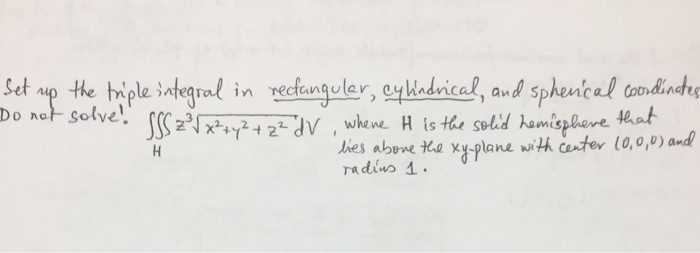 Set up the triple integral in rectangular, cylindrical, and spherical coordinates
Do not solve! ∭ z³√x²+y²+z² dV, where H is the solid hemisphere that
H lies above the xy-plane with center (0,0,0) and
radius 1.